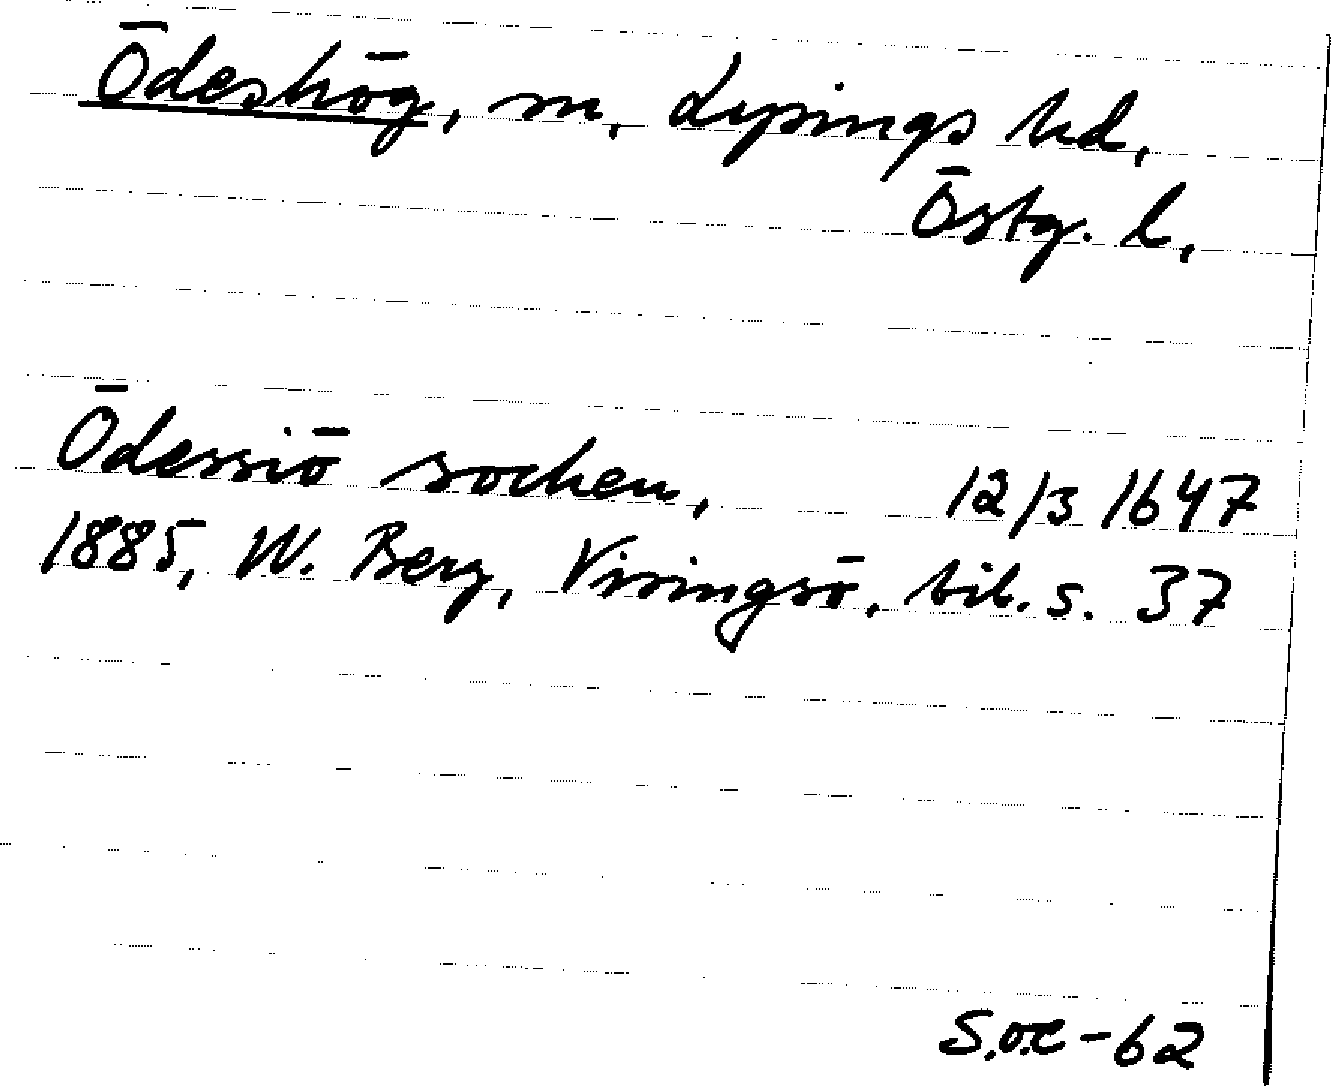 Ödeshög, sn, Lysings hd,
Östg. l,
Ödessiö sochen, 12/3 1647
1885, W. Berg, Visingsö, bil. s. 37
S.o.e-62